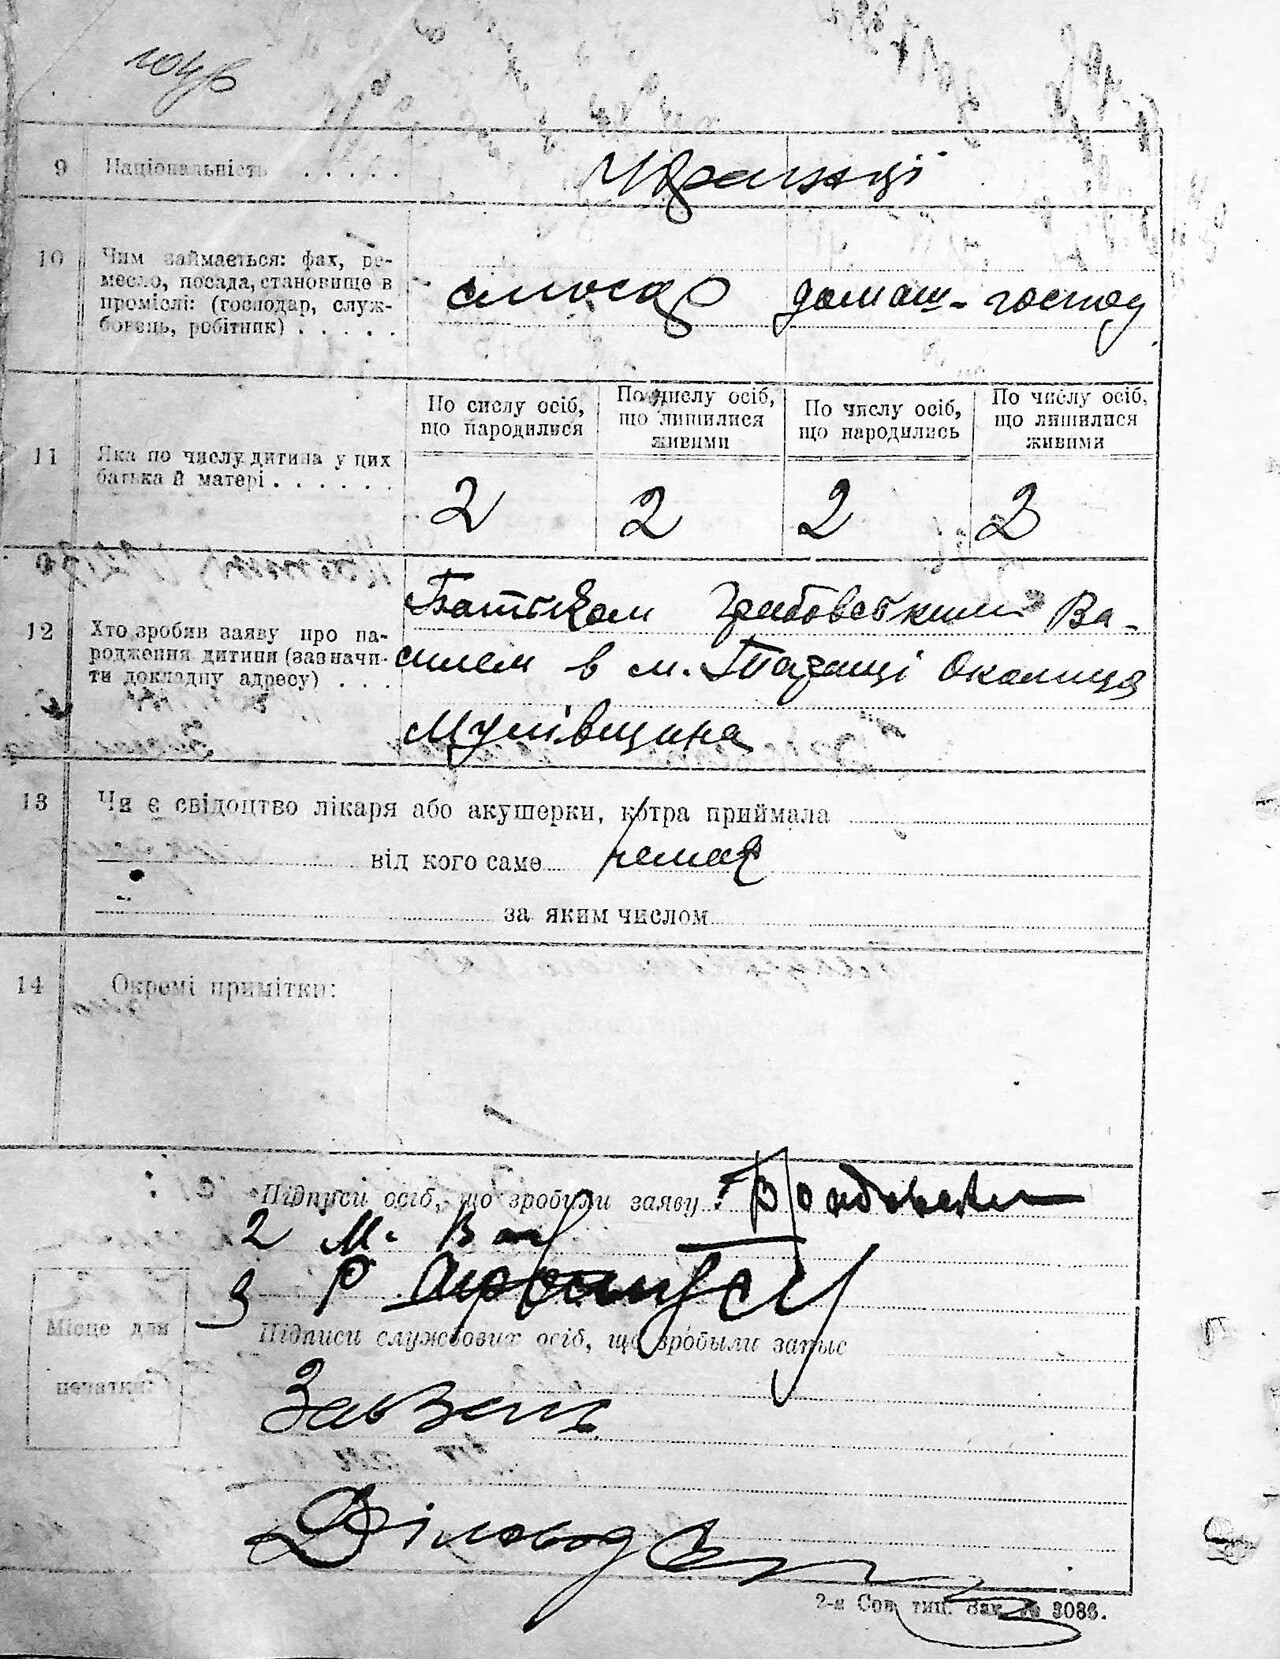 9 Національність . . . . . Українці
10 Чим займається: фах, ре-
месло, посада, становище в
промислі: (господар, служ-
бовець, робітник) . . . . .
слюсар домаш-господ
11 Яка по числу дитина у цих
батька й матері . . . . . .
По числу осіб,
що народилися
По числу осіб,
що лишилися
живими
По числу осіб,
що народились
По числу осіб,
що лишилися
живими
2 2 2 2
12 Хто зробив заяву про на-
родження дитини (зазначи-
ти докладну адресу) . . .
Батьком Грабовським Ва-
силем в м. Таращі Околиця
13 Чи є свідоцтво лікаря або акушерки, котра приймала
від кого саме немає
за яким числом
14 Окремі примітки:
Підписи осіб, що зробили заяву:
2 М.
3 Р
Місце для
печатки
Підписи службових осіб, що зробыли запыс
ЗавЗагс
Діловод
2-я Сов. тип. Зак. № 3086.